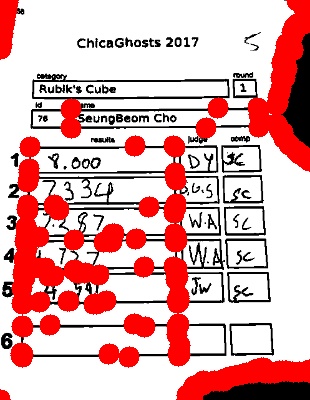 ChicaGhosts 2017 5
category round
Rubik's Cube 1
id
76 SeungBeom Cho
results judge comp
1 8.000 DY SC
2 7.334 SC
3 .287 W.A SC
4 W.A SC
5 JW SC
6